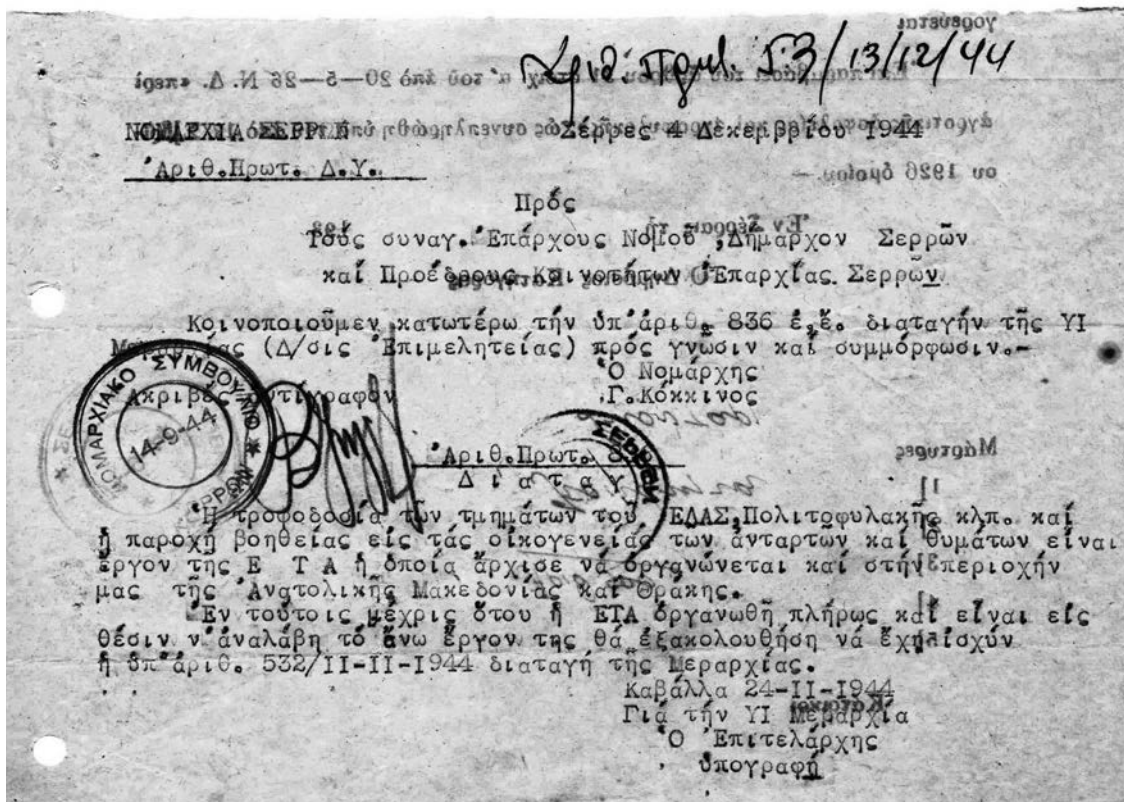 Αριθ. Πρωτ. 53/13/12/44
ΝΟΜΑΡΧΙΑ ΣΕΡΡΩΝ Σέρρες 4 Δεκεμβρίου 1944
Ἀριθ.Πρωτ. Δ.Υ.
Πρός
Τούς συναγ. Ἐπάρχους Νομοῦ ,Δήμαρχον Σερρῶν
καί Προέδρους Κοινοτήτων Ἐπαρχίας Σερρῶν
Κοινοποιοῦμεν κατωτέρω τήν ὑπ'ἀριθ. 836 ἐ.ἔ. διαταγήν τῆς ΥΙ
Μεραρχίας (Δ/σις Ἐπιμελητείας) πρός γνῶσιν καί συμμόρφωσιν.-
Ὁ Νομάρχης
Ἀκριβές ἀντίγραφον Γ.Κόκκινος
ΝΟΜΑΡΧΙΑΚΟ ΣΥΜΒΟΥΛΙΟ ΣΕΡΡΩΝ
14-9-44
ΣΕΡΡΩΝ
Ἀριθ.Πρωτ.
Διαταγ
Ἡ τροφοδοσία τῶν τμημάτων τοῦ ΕΛΑΣ,Πολιτοφυλακῆς κλπ. καί
ἡ παροχή βοηθείας εἰς τάς οἰκογενείας τῶν ἀνταρτων καί θυμάτων εἶναι
ἔργον της Ε Τ Α ἡ ὁποία ἄρχισε νά ὀργανώνεται καί στήν περιοχήν
μας τῆς Ἀνατολικῆς Μακεδονίας καί Θράκης.
Ἐν τούτοις μέχρις ὅτου ἡ ΕΤΑ ὀργανωθῆ πλήρως καί εἶναι εἰς
θέσιν ν'ἀναλάβη τό ἄνω ἔργον της θά ἐξακολουθήση νά ἔχη ἰσχύν
ἡ ὑπ'ἀριθ. 532/ΙΙ-ΙΙ-Ι944 διαταγή τῆς Μεραρχίας.
Καβάλλα 24-ΙΙ-Ι944
Γιά τήν ΥΙ Μεραρχία
Ὁ Ἐπιτελάρχης
ὑπογραφή